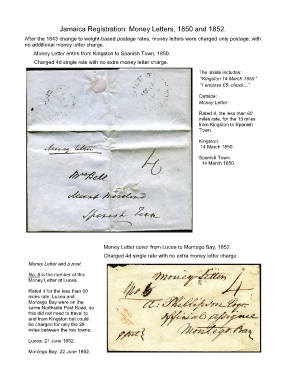 Jamaica Registration: Money Letters, 1850 and 1852.
After the 1843 change to weight-based postage rates, money letters were charged only postage, with
no additional money letter charge.
Money Letter entire from Kingston to Spanish Town, 1850.
Charged 4d single rate with no extra money letter charge.
The inside includes:
"Kingston 14 March 1850"
"I enclose £5- check..."
Outside:
Money Letter.
Rated 4, the less than 60
miles rate, for the 13 miles
from Kingston to Spanish
Town.
Kingston:
14 March 1850.
Spanish Town:
14 March 1850.
Money Letter
4
Mrs Bell
Spanish Town
Money Letter cover from Lucea to Montego Bay, 1852.
Charged 4d single rate with no extra money letter charge.
Money Letter and a post.
No. 6 is the number of this
Money Letter at Lucea.
Rated 4 for the less than 60
miles rate. Lucea and
Montego Bay were on the
same Northside Post Road, so
this did not need to travel to
and from Kingston but could
be charged for only the 25
miles between the two towns.
Lucea: 21 June 1852.
Montego Bay: 22 June 1852.
Money Letter
No 6
4
Phillipson Esqr
Official Assignee
Montego Bay